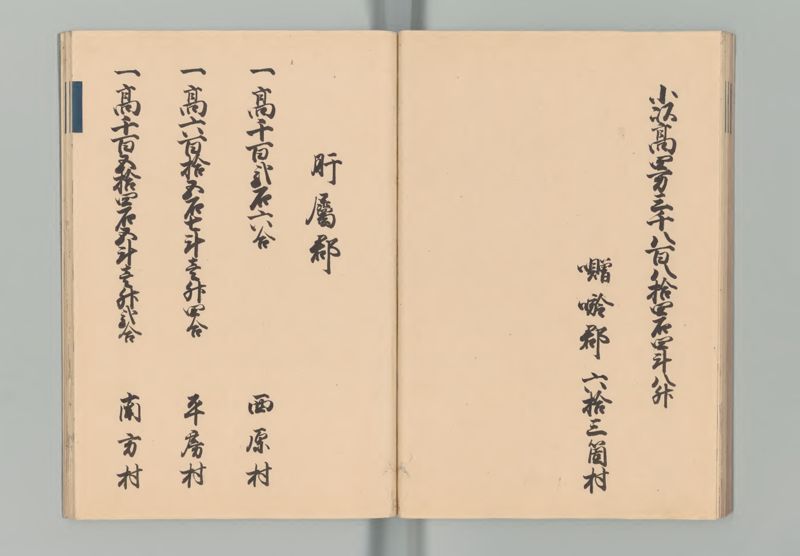 小以高四万三千八百八拾四石四斗八升
囎唹郡六拾三箇村
肝属郡
一高千百弐石六合 西原村
一高六百拾五石七斗壱升四合 平房村
一高千百五拾四石五斗壱升弐合 南方村